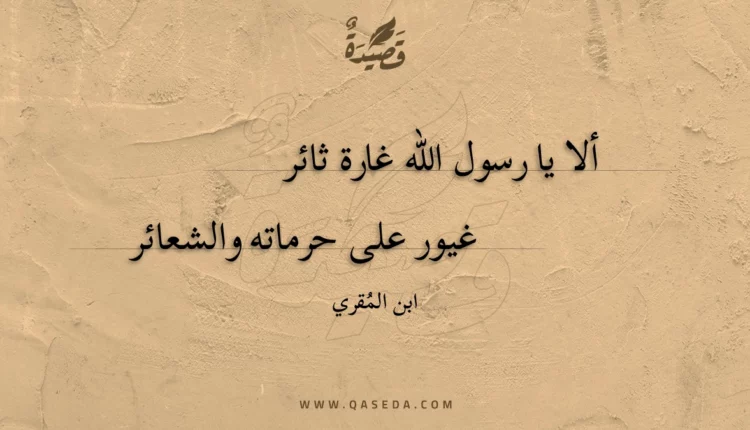 قَصِيدَةٌ
ألا يا رسول الله غارة ثائر
غيور على حرماته والشعائر
ابن المُقري
WWW.QASEDA.COM